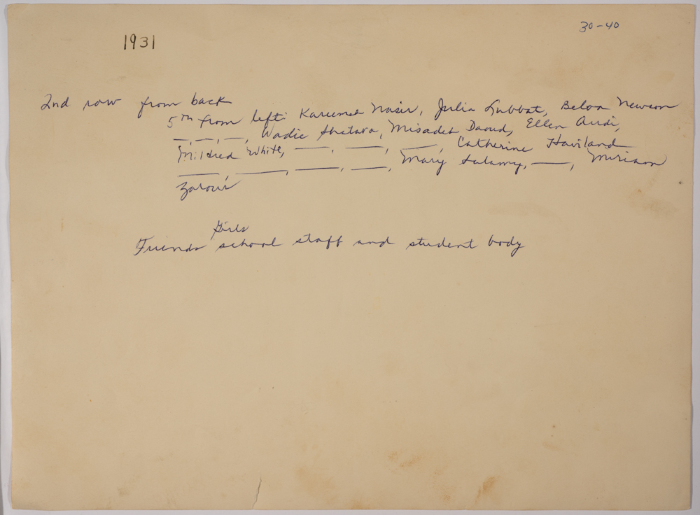 30-40
1931
2nd row from back
5th from left Kareemeh Nasir, Julia Dubbat, Belva Newsom
__, __, __, Wadie Shatara, Misadeh Daoud, Ellen Audi,
Mildred White, __, __, __, Catherine Haviland
__, __, __, __, Mary Salamy, __, Muriam
Zarour
Girls
Friends school staff and student body